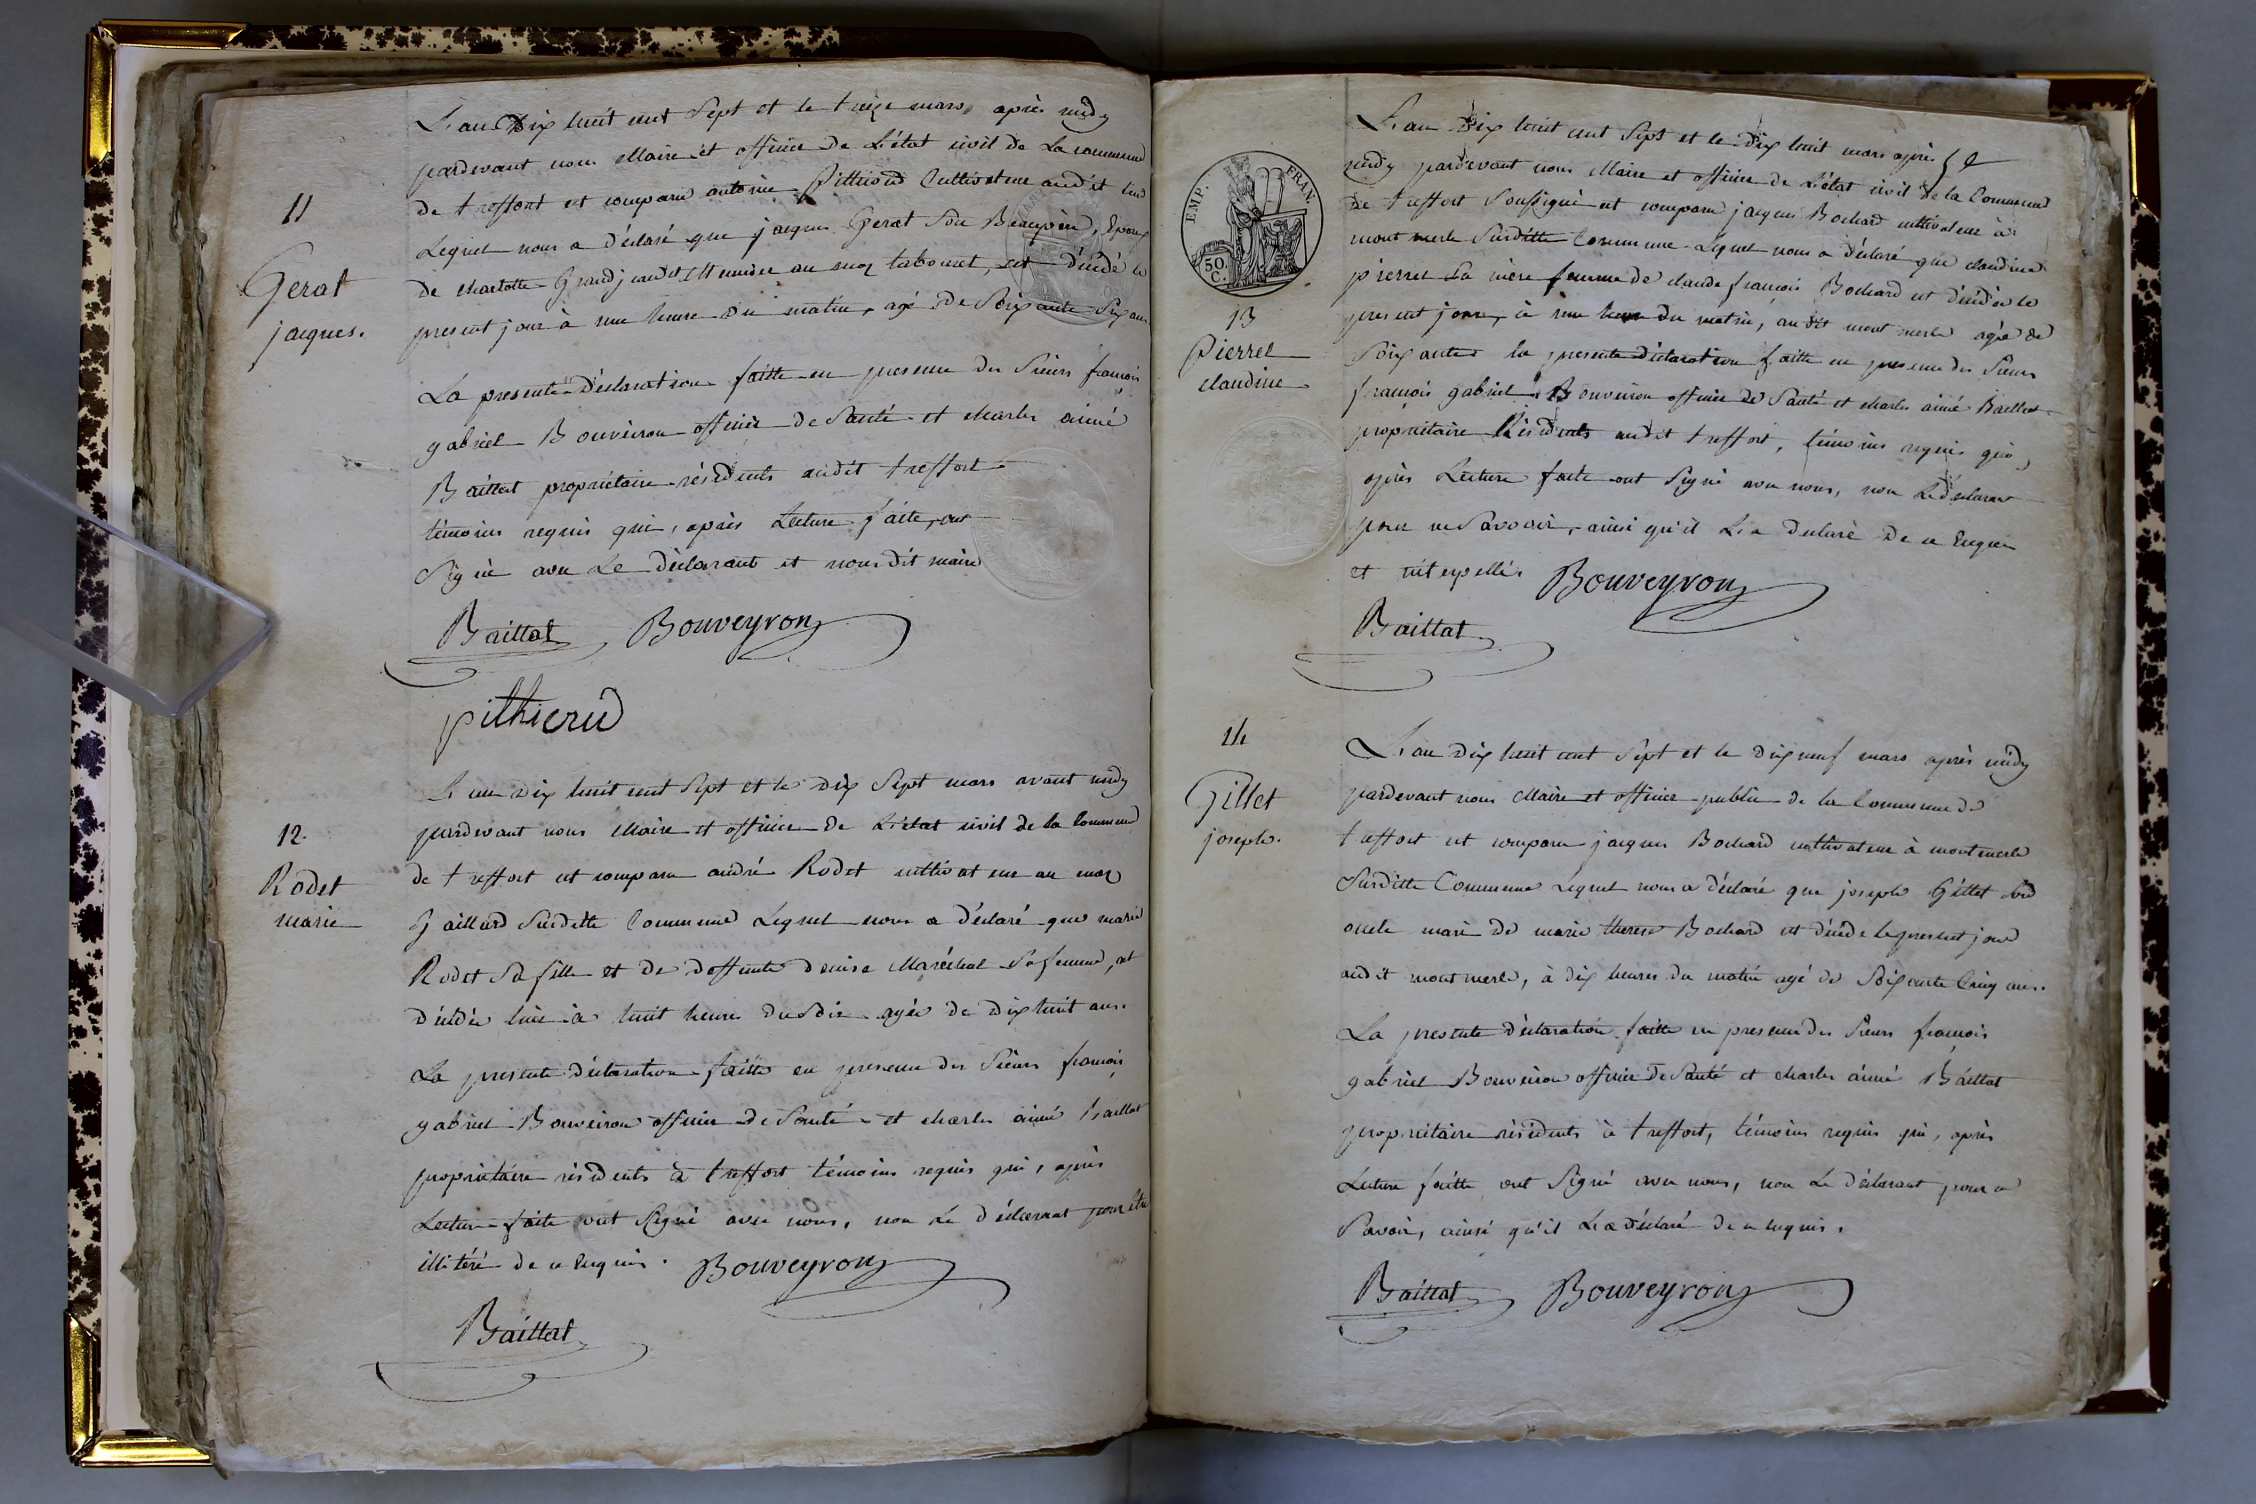 11
Gerat
jacques.
L'an Dix huit cent Sept et le treize mars, après midy
pardevant nous Maire et officier de L'état civil de La commune
de treffort est comparu antoine Pithioud Cultivateur audit lieu
Lequel nous a déclaré que jacques Gerat Son Beaupère, Epoux
de charlotte Grandjean et Meunier au moulin tabouret, est décédé le
present jour à une heure du matin, agé de Soixante Six ans
La presente déclaration faitte en presence des Sieurs françois
gabriel Bouveiron officier de Santé et charles aimé
Baillat propriétaire résidents audit treffort
témoins requis qui, après Lecture faite, ont
Signé avec Le déclarant et nous dit maire
Baillat Bouveyron
pithioud
12.
Rodet
marie
L'an Dix huit cent Sept et le dix Sept mars avant midy
pardevant nous Maire et officier de L'état civil de la Commune
de treffort est comparu andré Rodet cultivateur au mas
Gaillard Susditte Commune Lequel nous a déclaré que marie
Rodet Sa fille et de deffunte denise Maréchal Sa femme, est
décédée hier à huit heures du Soir agée de dix huit ans.
La presente déclaration faitte en presence des Sieurs françois
gabriel Bouveiron officier de Santé et charles aimé baillat
propriétaire résidents à treffort témoins requis qui, après
Lecture faite ont Signé avec nous, non Le déclarant pour être
illitéré de ce Enquis. Bouveyron
Baillat
EMP. FRAN.
50 C.
13
Pierrel
claudine
L'an Dix huit cent Sept et le dix huit mars après
midy pardevant nous Maire et officier de L'état civil de la Commune
de treffort Soussigné est comparu jacques Bochard cultivateur à
montmerle Susditte Commune Lequel nous a déclaré que claudine
pierrel Sa mère femme de claude françois Bochard est décédée le
present jour, à une heure du matin, audit mont merle agée de
Soixante la presente déclaration faitte en presence des Sieurs
françois gabriel Bouveiron officier de Santé et charles aimé Baillat
propriétaire Résidents audit treffort, témoins requis qui,
après Lecture faite ont Signé avec nous, non Le déclarant
pour ne Savoir, ainsi qu'il L'a declaré De ce Enquis
et interpellé. Bouveyron
Baillat
14
Gillet
joseph.
L'an dix huit cent Sept et le dix neuf mars après midy
pardevant nous Maire et officier public de la Commune de
treffort est comparu jacques Bochard cultivateur à montmerle
Susditte Commune Lequel nous a déclaré que joseph Gillet Son
oncle mari de marie therese Bochard est décédé le present jour
audit mont merle, à dix heures du matin agé de Soixante Cinq ans.
La presente déclaration faitte en presence des Sieurs françois
gabriel Bouveiron officier de Santé et charles aimé Baillat
propriétaire résidents à treffort, témoins requis qui, après
Lecture faitte ont Signé avec nous, non Le déclarant pour ne
Savoir, ainsi qu'il L'a déclaré de ce enquis.
Baillat Bouveyron